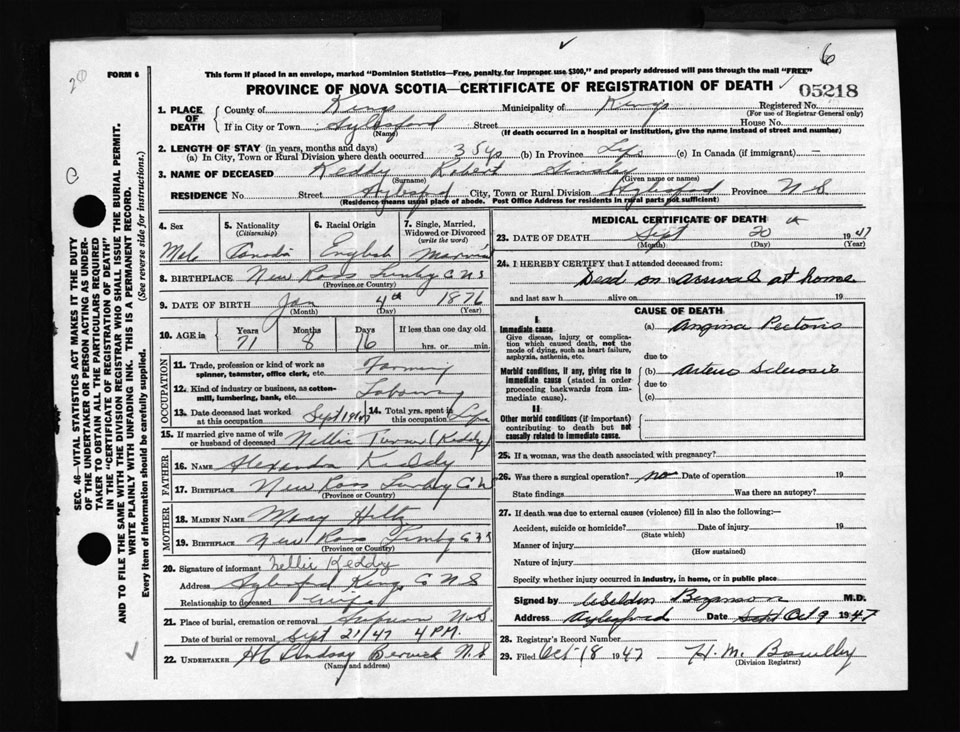 6
20
FORM 6
This form if placed in an envelope, marked "Dominion Statistics—Free, penalty for improper use $300," and properly addressed will pass through the mail "FREE"
PROVINCE OF NOVA SCOTIA—CERTIFICATE OF REGISTRATION OF DEATH
05218
1. PLACE OF DEATH County of Kings Municipality of Kings Registered No.
(For use of Registrar General only)
If in City or Town Aylesford Street House No.
(Name) (If death occurred in a hospital or institution, give the name instead of street and number)
2. LENGTH OF STAY (in years, months and days)
(a) In City, Town or Rural Division where death occurred 35 yrs (b) In Province Life (c) In Canada (if immigrant) —
3. NAME OF DECEASED Keddy Robert
(Surname) (Given name or names)
RESIDENCE No. Street Aylesford City, Town or Rural Division Aylesford Province N S
(Residence means usual place of abode. Post Office Address for residents in rural parts not sufficient)
4. Sex
Male
5. Nationality (Citizenship)
Canada
6. Racial Origin
English
7. Single, Married, Widowed or Divorced (write the word)
Married
8. BIRTHPLACE New Ross C N S
(Province or Country)
9. DATE OF BIRTH Jan 4th 1876
(Month) (Day) (Year)
10. AGE in Years Months Days If less than one day old
71 8 16 hrs. or min.
OCCUPATION
11. Trade, profession or kind of work as spinner, teamster, office clerk, etc. Farming
12. Kind of industry or business, as cotton-mill, lumbering, bank, etc. Labouring
13. Date deceased last worked at this occupation Sept 1947 14. Total yrs. spent in this occupation Life
15. If married give name of wife or husband of deceased Nellie Turner (Keddy)
FATHER
16. NAME Keddy
17. BIRTHPLACE New Ross C N
(Province or Country)
MOTHER
18. MAIDEN NAME Mary Hiltz
19. BIRTHPLACE New Ross
(Province or Country)
20. Signature of informant Nellie Keddy
Address Aylesford Kings C N S
Relationship to deceased wife
21. Place of burial, cremation or removal N.S.
Date of burial or removal Sept 21/47 4 P.M.
22. UNDERTAKER Lindsay Berwick N.S.
(Name and address)
MEDICAL CERTIFICATE OF DEATH
23. DATE OF DEATH Sept 20th 1947
(Month) (Day) (Year)
24. I HEREBY CERTIFY that I attended deceased from:
Dead on arrival at home
and last saw h alive on 19
CAUSE OF DEATH
I.
Immediate cause
Give disease, injury or complication which caused death, not the mode of dying, such as heart failure, asphyxia, asthenia, etc.
(a) Angina Pectoris
due to
Morbid conditions, if any, giving rise to immediate cause (stated in order proceeding backwards from immediate cause).
(b) Arterio Sclerosis
due to
(c)
II
Other morbid conditions (if important) contributing to death but not causally related to immediate cause.
25. If a woman, was the death associated with pregnancy?
26. Was there a surgical operation? no Date of operation 19
State findings Was there an autopsy?
27. If death was due to external causes (violence) fill in also the following:—
Accident, suicide or homicide? Date of injury 19
(State which)
Manner of injury
(How sustained)
Nature of injury
Specify whether injury occurred in industry, in home, or in public place
Signed by M.D.
Address Aylesford Date Sept Oct 9 1947
28. Registrar's Record Number
29. Filed Oct 18 1947 H. M.
(Division Registrar)
SEC. 46—VITAL STATISTICS ACT MAKES IT THE DUTY
OF THE UNDERTAKER OR PERSON ACTING AS UNDER-
TAKER TO OBTAIN ALL THE PARTICULARS REQUIRED
IN THE "CERTIFICATE OF REGISTRATION OF DEATH"
AND TO FILE THE SAME WITH THE DIVISION REGISTRAR WHO SHALL ISSUE THE BURIAL PERMIT.
WRITE PLAINLY WITH UNFADING INK. THIS IS A PERMANENT RECORD.
Every item of information should be carefully supplied. (See reverse side for instructions.)